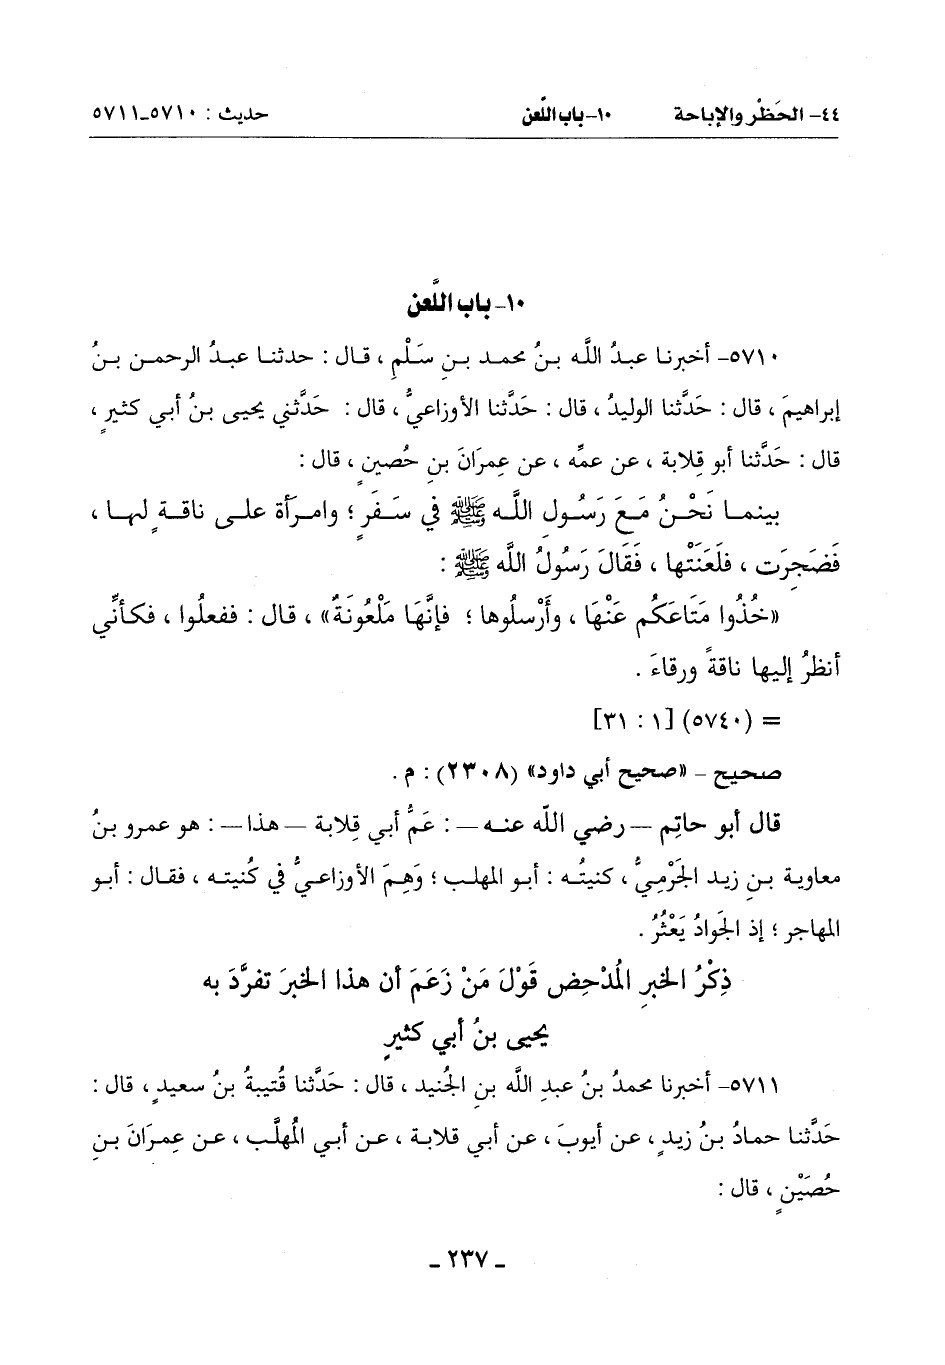 ٤٤- الحَظْر والإباحة ١٠- باب اللَّعن حديث : ٥٧١٠-٥٧١١
١٠- باب اللَّعن
٥٧١٠- أخبرنا عبدُ اللَّه بنُ محمد بنِ سَلْمٍ ، قال : حدثنا عبدُ الرحمن بنُ
إبراهيمَ ، قال : حَدَّثنا الوليدُ ، قال : حَدَّثنا الأوزاعيُّ ، قال : حَدَّثني يحيى بنُ أبي كثيرٍ ،
قال : حَدَّثنا أبو قِلابة ، عن عمِّه ، عن عِمرَانَ بنِ حُصينٍ ، قال :
بينما نَحْنُ مَعَ رَسُولِ اللَّه ﷺ في سَفَرٍ ؛ وامرَأة على ناقةٍ لها ،
فَضَجِرَت ، فلَعَنَتْها ، فَقَالَ رَسُولُ اللَّه ﷺ :
«خُذُوا مَتَاعَكُم عَنْهَا ، وأَرْسلُوها ؛ فإنَّهَا مَلْعُونَةٌ» ، قال : ففعلُوا ، فكأنِّي
أنظرُ إليها ناقةً ورقاءَ .
= (٥٧٤٠) [١ : ٣١]
صحيح - «صحيح أبي داود» (٢٣٠٨) : م .
قال أبو حاتِم — رضي اللَّه عنه — : عَمُّ أبي قِلابة — هذا — : هو عمرو بنُ
معاوية بنِ زيد الجَرْميُّ ، كنيتُه : أبو المهلب ؛ وَهِمَ الأوزاعيُّ في كُنيته ، فقال : أبو
المهاجر ؛ إذ الجَوادُ يَعْثُرُ .
ذِكْرُ الخبرِ المُدْحِض قَوْلَ مَنْ زَعَمَ أن هذا الخبرَ تفرَّدَ به
يحيى بنُ أبي كثيرٍ
٥٧١١- أخبرنا محمدُ بنُ عبدِ اللَّه بنِ الجُنيد ، قال : حَدَّثنا قُتيبةُ بنُ سعيدٍ ، قال :
حَدَّثنا حمادُ بنُ زيدٍ ، عن أيوبَ ، عن أبي قلابة ، عن أبي المُهلَّب ، عن عِمرَانَ بنِ
حُصَيْنٍ ، قال :
- ٢٣٧ -